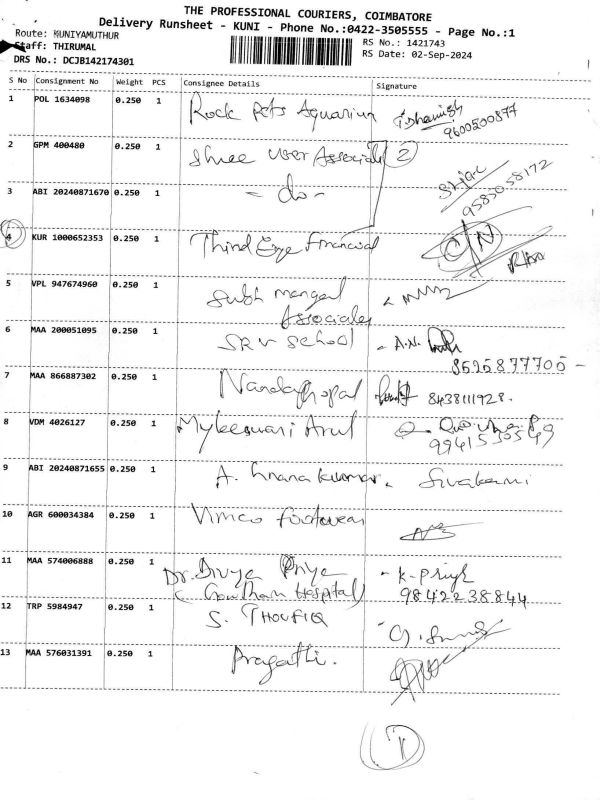 THE PROFESSIONAL COURIERS, COIMBATORE
Delivery Runsheet - KUNI - Phone No.:0422-3505555 - Page No.:1
Route: KUNIYAMUTHUR
Staff: THIRUMAL
DRS No.: DCJB142174301
RS No.: 1421743
RS Date: 02-Sep-2024
S No Consignment No Weight PCS Consignee Details Signature
1 POL 1634098 0.250 1 Rock Pets Aquarium
9600500877
2 GPM 400480 0.250 1 Shree User Associate 2
3 ABI 20240871670 0.250 1 - do -
9585058172
4 KUR 1000652353 0.250 1 Third Eye Financial C/N
5 VPL 947674960 0.250 1 Subh mangal
Associates
6 MAA 200051095 0.250 1 SRV School - A.N.
8525877705 -
7 MAA 866887302 0.250 1 Nandagopal 8438111928.
8 VDM 4026127 0.250 1 Myleeswari Arul
9941530549
9 ABI 20240871655 0.250 1 A. Gnanakumar. Sivakami
10 AGR 600034384 0.250 1 Vimco footwear
11 MAA 574006888 0.250 1 Dr. Divya Priya - K. Priya
(Gowtham Hospital) 9842238844
12 TRP 5984947 0.250 1 S. THOUFIQ
13 MAA 576031391 0.250 1 Pragathi.